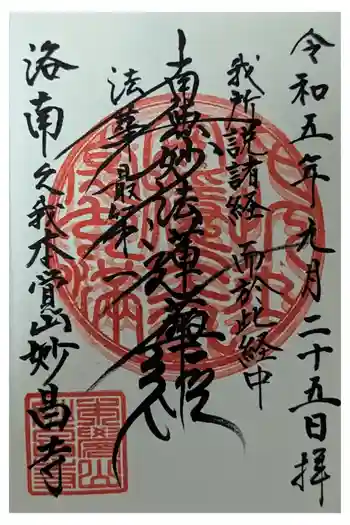 令和五年九月二十五日拝
我所説諸経 而於此経中
南無妙法蓮華経
法華最第一
洛南 久我本覚山妙昌寺